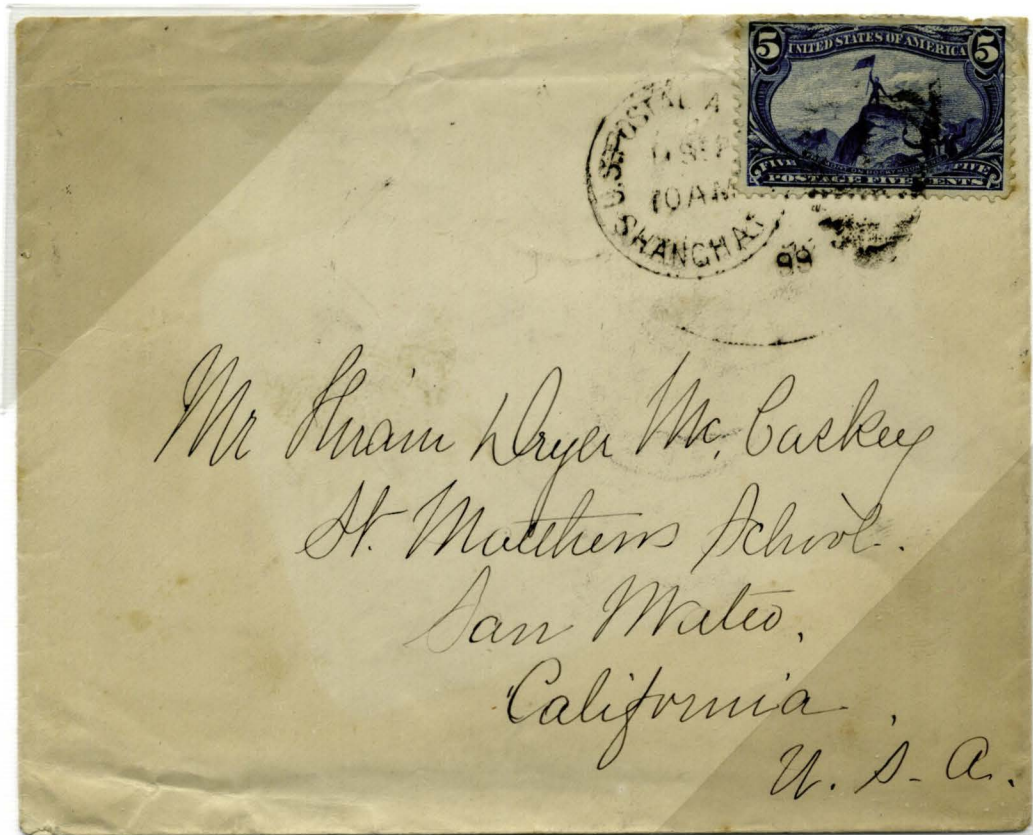 5 UNITED STATES OF AMERICA 5
FIVE FIVE
POSTAGE FIVE CENTS
U.S. POSTAL A
SEP
10 AM
SHANGHAI
99
Mr Hiram Dryer Mc. Caskey
St. Matthews School.
San Mateo,
California,
U. S. A.